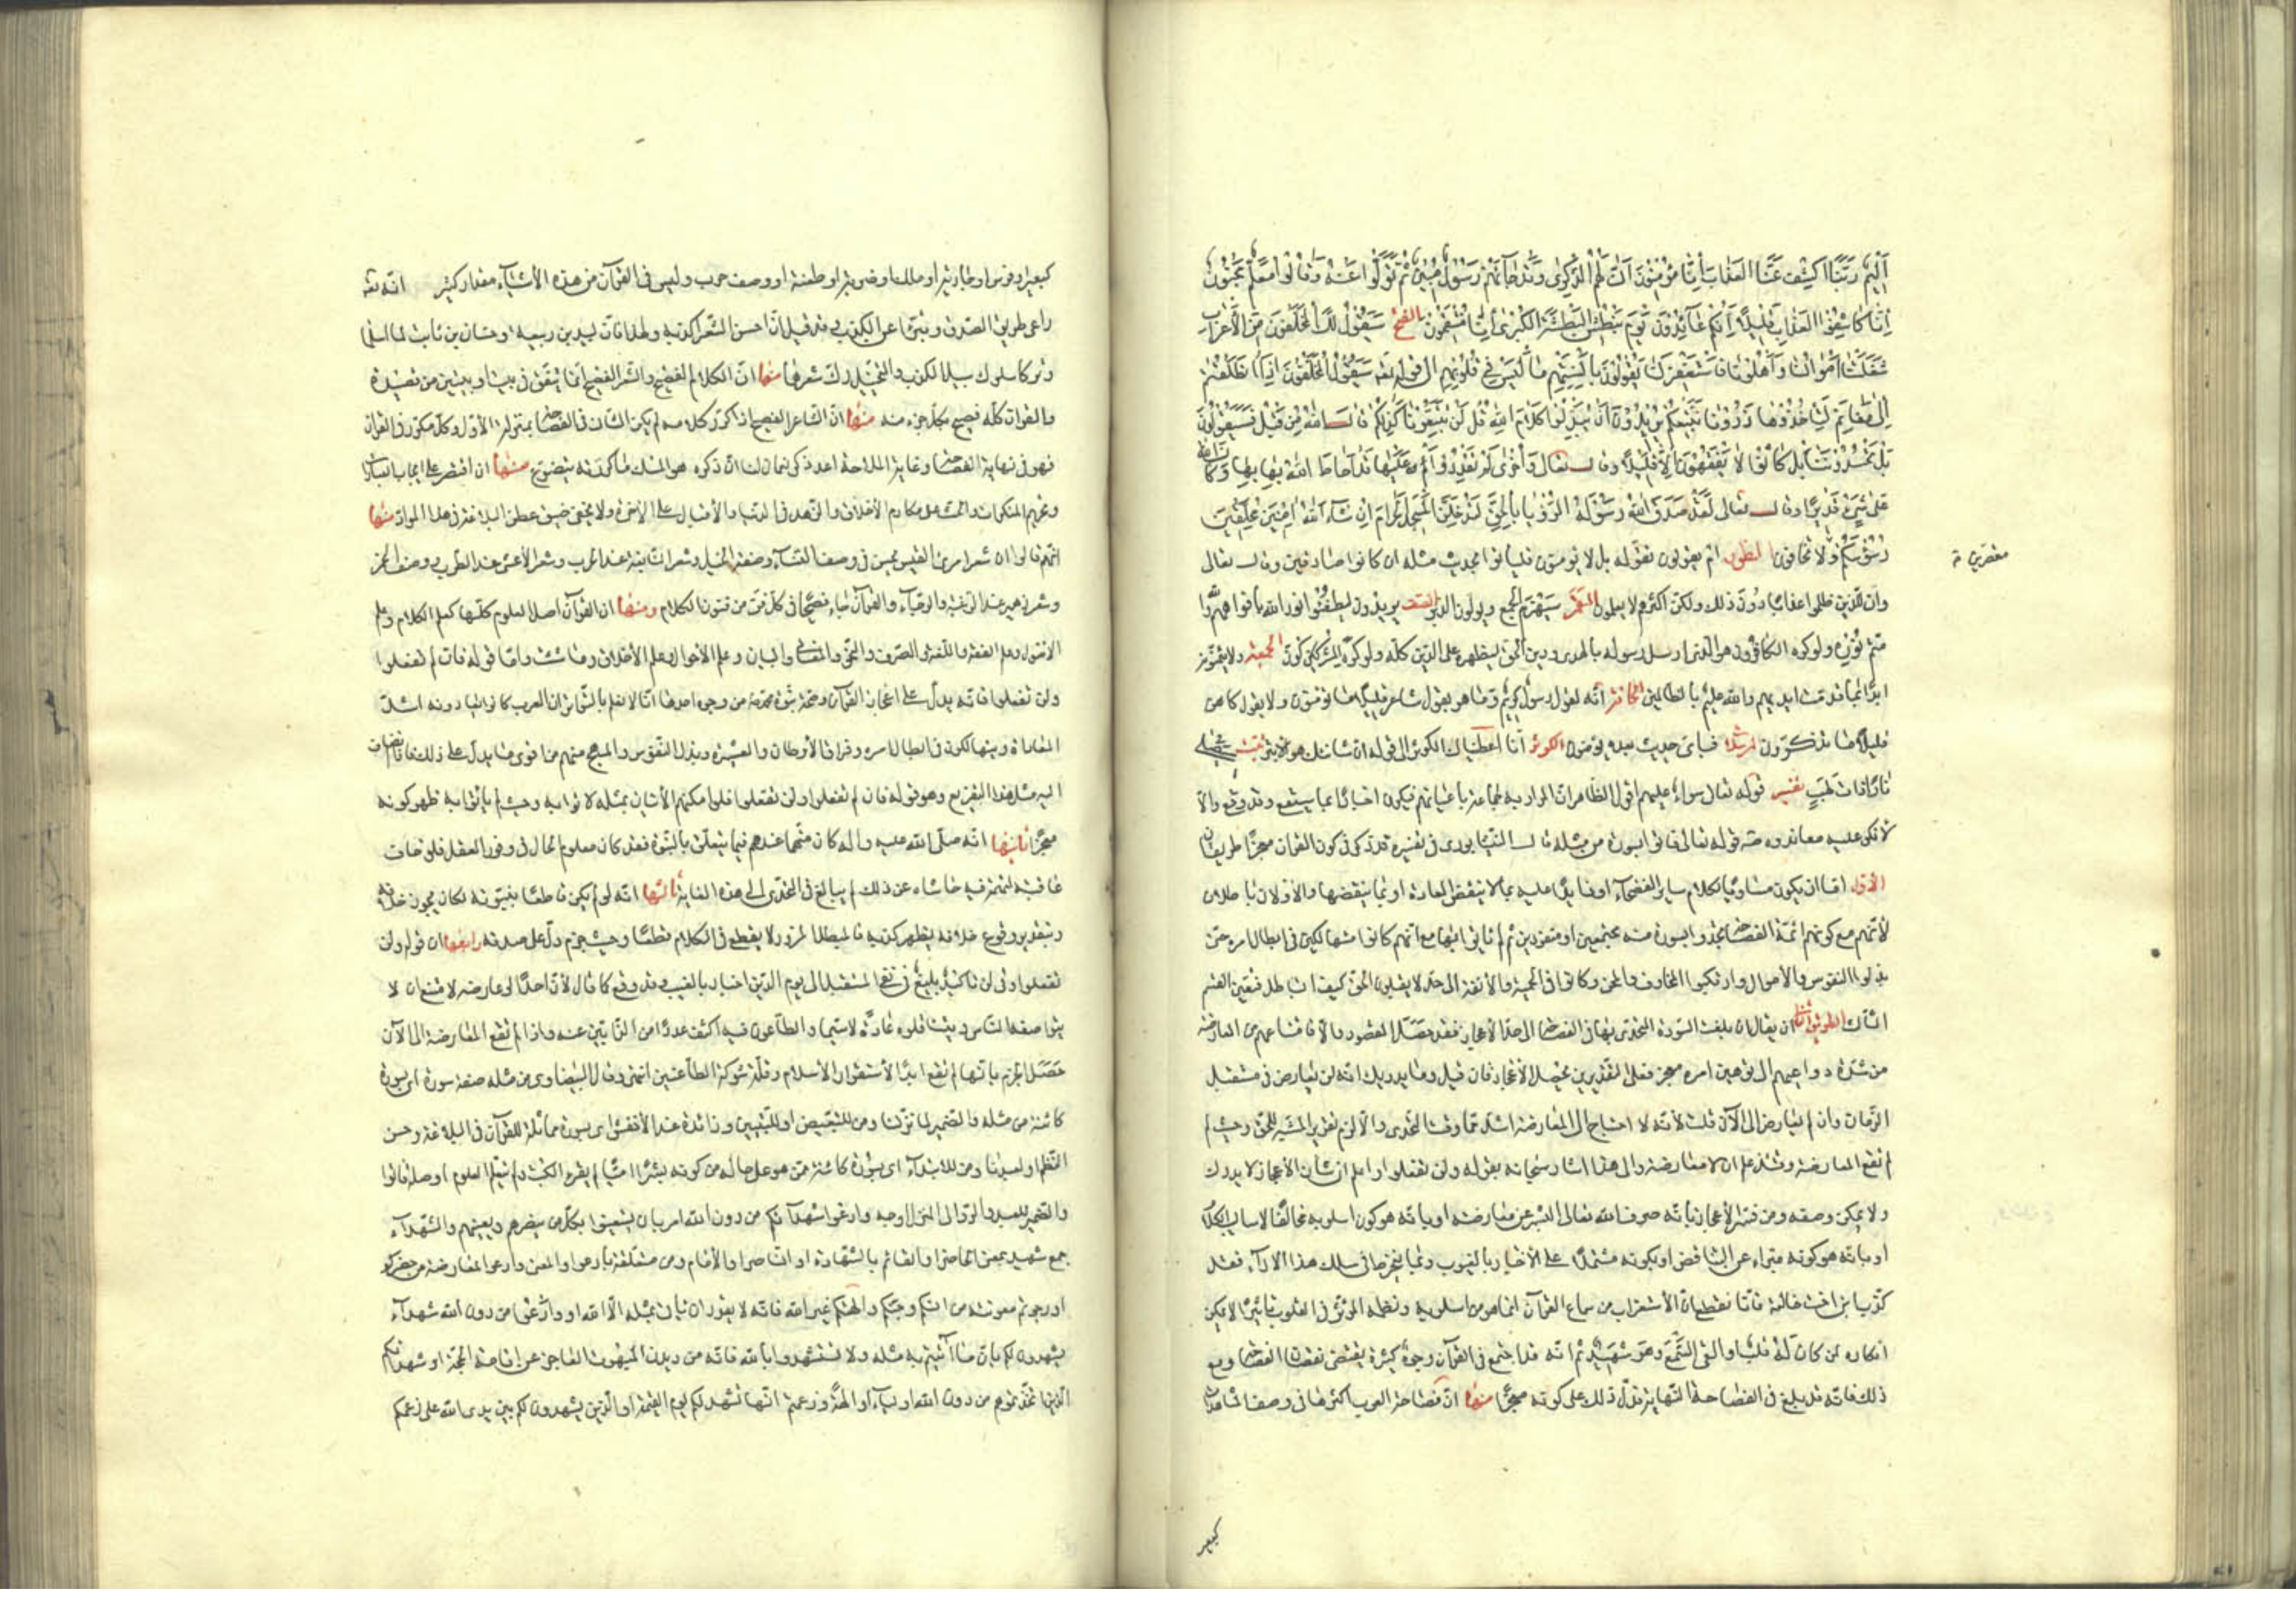 أَلِيمٌ رَبَّنَا اكْشِفْ عَنَّا العَذابَ إِنَّا مُؤمِنُونَ أَنَّى لَهُمُ الذِّكْرى وَقَدْ جَآءَهُمْ رَسُولٌ مُبِينٌ ثُمَّ تَوَلَّوْا عَنْهُ وَقٰالُوا مُعَلَّمٌ مَجْنُونٌ
إِنَّا كَاشِفُوا العَذابِ قَلِيلًا إِنَّكُمْ عَآئِدُونَ يَوْمَ نَبْطِشُ البَطْشَةَ الكُبْرىٰ إِنَّا مُنْتَقِمُونَ الفتح سَيَقُولُ لَكَ المُخَلَّفُونَ مِنَ الأَعْرابِ
شَغَلَتْنَا أَمْوالُنَا وَأَهْلُونَا فَاسْتَغْفِرْ لَنَا يَقُولُونَ بِأَلْسِنَتِهِمْ مَا لَيْسَ فِي قُلُوبِهِمْ الى قوله تعه سَيَقُولُ المُخَلَّفُونَ إِذَا انْطَلَقْتُمْ
إِلىٰ مَغانِمَ لِتَأْخُذُوهَا ذَرُونَا نَتَّبِعْكُمْ يُرِيدُونَ أَنْ يُبَدِّلُوا كَلَامَ اللهِ قُلْ لَنْ تَتَّبِعُونَا كَذٰلِكُمْ قالَ اللهُ مِنْ قَبْلُ فَسَيَقُولُونَ
بَلْ تَحْسُدُونَنَا بَلْ كَانُوا لَا يَفْقَهُونَ إِلَّا قَلِيلًا وقال تعالى وَأُخْرٰى لَمْ تَقْدِرُوا عَلَيْهَا قَدْ أَحَاطَ اللهُ بِهَا وَكَانَ اللهُ
عَلىٰ شَيْءٍ قَدِيرًا وقال تعالى لَقَدْ صَدَقَ اللهُ رَسُولَهُ الرُّؤْيا بِالْحَقِّ لَتَدْخُلُنَّ المَسْجِدَ الحَرامَ إِنْ شَآءَ اللهُ آمِنِينَ مُحَلِّقِينَ
رُؤُسَكُمْ ولا تخافون الطور ام يقولون تقوله بل لا يؤمنون فليأتوا بحديث مثله ان كانوا صادقين وقال تعالى
وان للذين ظلموا عذابا دون ذلك ولكن اكثرهم لا يعلمون القمر سيهزم الجمع ويولون الدبر الصف يريدون ليطفئوا نور الله بأفواههم والله
متم نوره ولو كره الكافرون هو الذى ارسل رسوله بالهدى ودين الحق ليظهره على الدين كله ولو كره المشركون الجمعة ولا يتمنونه
ابدا بما قدمت ايديهم والله عليم بالظالمين الحاقة انه لقول رسول كريم وما هو بقول شاعر قليلا ما تؤمنون ولا بقول كاهن
قليلا ما تذكرون المرسلات فبأى حديث بعده يؤمنون الكوثر انا اعطيناك الكوثر الى قوله ان شانئك هو الابتر تبت سيصلى
نارا ذات لهب تفسير قوله تعالى سواء عليهم اقول الظاهر ان المراد به جماعة باعيانهم فيكون اخبارا بما سيقع وقد وقع والا
لأنكر عليه معاندوه منه قوله تعالى فأتوا بسورة من مثله قال النيسابورى فى تفسيره قد ذكر فى كون القرآن معجزا طريقان
الاول اما ان يكون مساويا لكلام ساير الفصحاء او زايدا عليه بما لا ينقض العادة او بما ينقضها والاولان باطلان
لأنهم مع كونهم ائمة الفصحاء تحدوا بسورة منه مجتمعين او منفردين ثم لم يأتوا بها مع انهم كانوا متهالكين فى ابطال امره حتى
بذلوا النفوس والاموال وارتكبوا المخاوف والمحن وكانوا فى الحمية والانفة الى حد لا يقبلون الحق كيف الباطل فتعين القسم
الثالث الطريق الثانى ان يقال ان بلغت السورة المتحدى بها فى الفصاحة الى حد الاعجاز فقد حصل المقصود والا فامتناعهم عن المعارضة
من شدة دواعيهم الى توهين امره معجز فعلى التقديرين يحصل الاعجاز فان قيل وما يدريك انه لن يعارض فى مستقبل
الزمان وان لم يعارض الى الآن قلت لأنه لا احتياج الى المعارضة اشد مما وقت التحدى والا لزم تقرير المشبه للحق وحيث لم
تقع المعارضة وقتئذ علم ان لا معارضة والى هذا اشار سبحانه بقوله ولن تفعلوا واعلم ان شأن الاعجاز لا يدرك
ولا يمكن وصفه ومن فسر الاعجاز بأنه صرف الله تعالى البشر عن معارضته او بأنه هو كون اسلوبه مخالفا لاساليب الكلام
او بأنه هو كونه مبرأ عن التناقض او بكونه مشتملا على الاخبار بالغيوب وبما ينخرط فى سلك هذه الآراء فقد
كذب ابن اخت خالته فانا نقطع ان الاستغراب من سماع القرآن انما هو من اسلوبه ونظمه المؤثر فى القلوب تأثيرا لا يمكن
انكاره لمن كان له قلب او القى السمع وهو شهيد ثم انه قد اجتمع فى القرآن وجوه كثيرة يقتضى نقصان الفصاحة ومع
ذلك فانه قد بلغ فى الفصاحة النهاية فدل ذلك على كونه معجزا منها ان فصاحة العرب اكثرها فى وصف المشاهدات
كبعير
كبعير او فرس او جارية او ملك او ضربة او طعنة او وصف حرب وليس فى القرآن من هذه الاشياء مقدار كثير انه تعه
راعى طريق الصدق وتبرى عن الكذب وقد قيل ان احسن الشعر اكذبه ولهذا فان لبيد بن ربيعة وحسان بن ثابت لما اسلما
وتركا سلوك سبيل الكذب والتخييل رك شعرهما منها ان الكلام الفصيح والشعر الفصيح انما يتفق فى بيت او بيتين من قصيدة
والقرآن كله فصيح بكل جزء منه منها ان الشاعر الفصيح اذا كرر كلامه لم يكن الثانى فى الفصاحة بمنزلة الاول وكل مكرر فى القرآن
فهو فى نهاية الفصاحة وغاية الملاحة اعد ذكر نعمان لنا ان ذكره هو المسك ما كررته يتضوع منها انه اقتصر على ايجاب العبادات
وتحريم المنكرات والحث على مكارم الاخلاق والزهد فى الدنيا والاقبال على الاخرة ولا يخفى ضيق عطن البلاغة فى هذه المواد منها
انهم قالوا ان شعر امرئ القيس يحسن فى وصف النساء وصفة الخيل وشعر النابغة عند الحرب وشعر الاعشى عند الطرب ووصف الخمر
وشعر زهير عند الرغبة والرجاء والقرآن جاء فصيحا فى كل فن من فنون الكلام ومنها ان القرآن اصل العلوم كلها كعلم الكلام وعلم
الاصول وعلم الفقه واللغة والصرف والنحو والمعانى والبيان وعلم الاحوال وعلم الاخلاق وما شئت واما قوله فان لم تفعلوا
ولن تفعلوا فانه يدل على اعجاز القرآن وصحة نبوة محمد من وجوه احدها انا لا نعلم بالتواتر ان العرب كانوا يعادونه اشد
المعاداة ويتهالكون فى ابطال امره وفراق الاوطان والعشيرة وبذل النفوس والمهج منهم من اقوى ما يدل على ذلك فاذا انضاف
اليه مثل هذا التقريع وهو قوله فان لم تفعلوا ولن تفعلوا فلو امكنهم الاتيان بمثله لاتوا به وحيث لم يأتوا به ظهر كونه
معجزا ثانيها انه صلى الله عليه وآله كان متهما عندهم فيما يتعلق بالنبوة فقد كان معلوم الحال فى وفور العقل فلو خاف
عاقبة امره فيه حاشاه عن ذلك لم يبالغ فى التحدى الى هذه الغاية ثالثها انه لو لم يكن قاطعا بنبوته لكان يجوز خلافه
وبتقدير وقوع خلافه يظهر كذبه فالمبطل المزور لا يقطع فى الكلام قطعا وحيث جزم دل على صدقه رابعها ان قوله ولن
تفعلوا وفى لن تأكيد بليغ فى نفى المستقبل الى يوم الدين اخبار بالغيب وقد وقع كما قال لأن احدا لو عارضه لامتنع ان لا
يتواصفه الناس ويتناقلوه عادة لا سيما والطاعنون فيه اكثف عددا من الذابين عنه واذا لم تقع المعارضة الى الآن
حصل الجزم بأنها لم تقع ابدا لاستقرار الاسلام وقلة شوكة الطاعنين انتهى وقال البيضاوى من مثله صفة سورة اى بسورة
كائنة من مثله والضمير لما نزلنا ومن للتبعيض او للتبيين وزائدة عند الاخفش اى بسورة مماثلة للقرآن فى البلاغة وحسن
النظم او لعبدنا ومن للابتداء اى بسورة كائنة ممن هو على حاله من كونه بشرا اميا لم يقرء الكتب ولم يتعلم العلوم او صلة فأتوا
والضمير للعبد والرد الى المنزل اوجه وادعوا شهداءكم من دون الله امر بأن يستعينوا بكل من ينصرهم ويعينهم والشهداء
جمع شهيد بمعنى الحاضر او القائم بالشهادة او الناصر او الامام ومن متعلقة بادعوا والمعنى وادعوا لمعارضته من حضركم
او رجوتم معونته من انسكم وجنكم وآلهتكم غير الله فانه لا يقدر ان يأتى بمثله الا الله او وادعوا من دون الله شهداء
يشهدون لكم بأن ما آتيتم به مثله ولا تستشهدوا بالله فانه من ديدن المبهوت العاجز عن اقامة الحجة او شهداءكم
الذين اتخذتموهم من دون الله اولياء او آلهة وزعمتم انها تشهد لكم يوم القيمة او الذين يشهدون لكم بين يدى الله على زعمكم